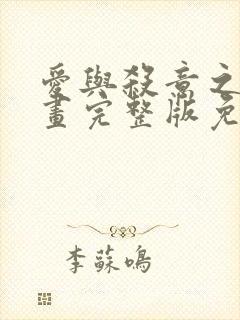 愛與殺意之
畫完整版免
李蘇鳴